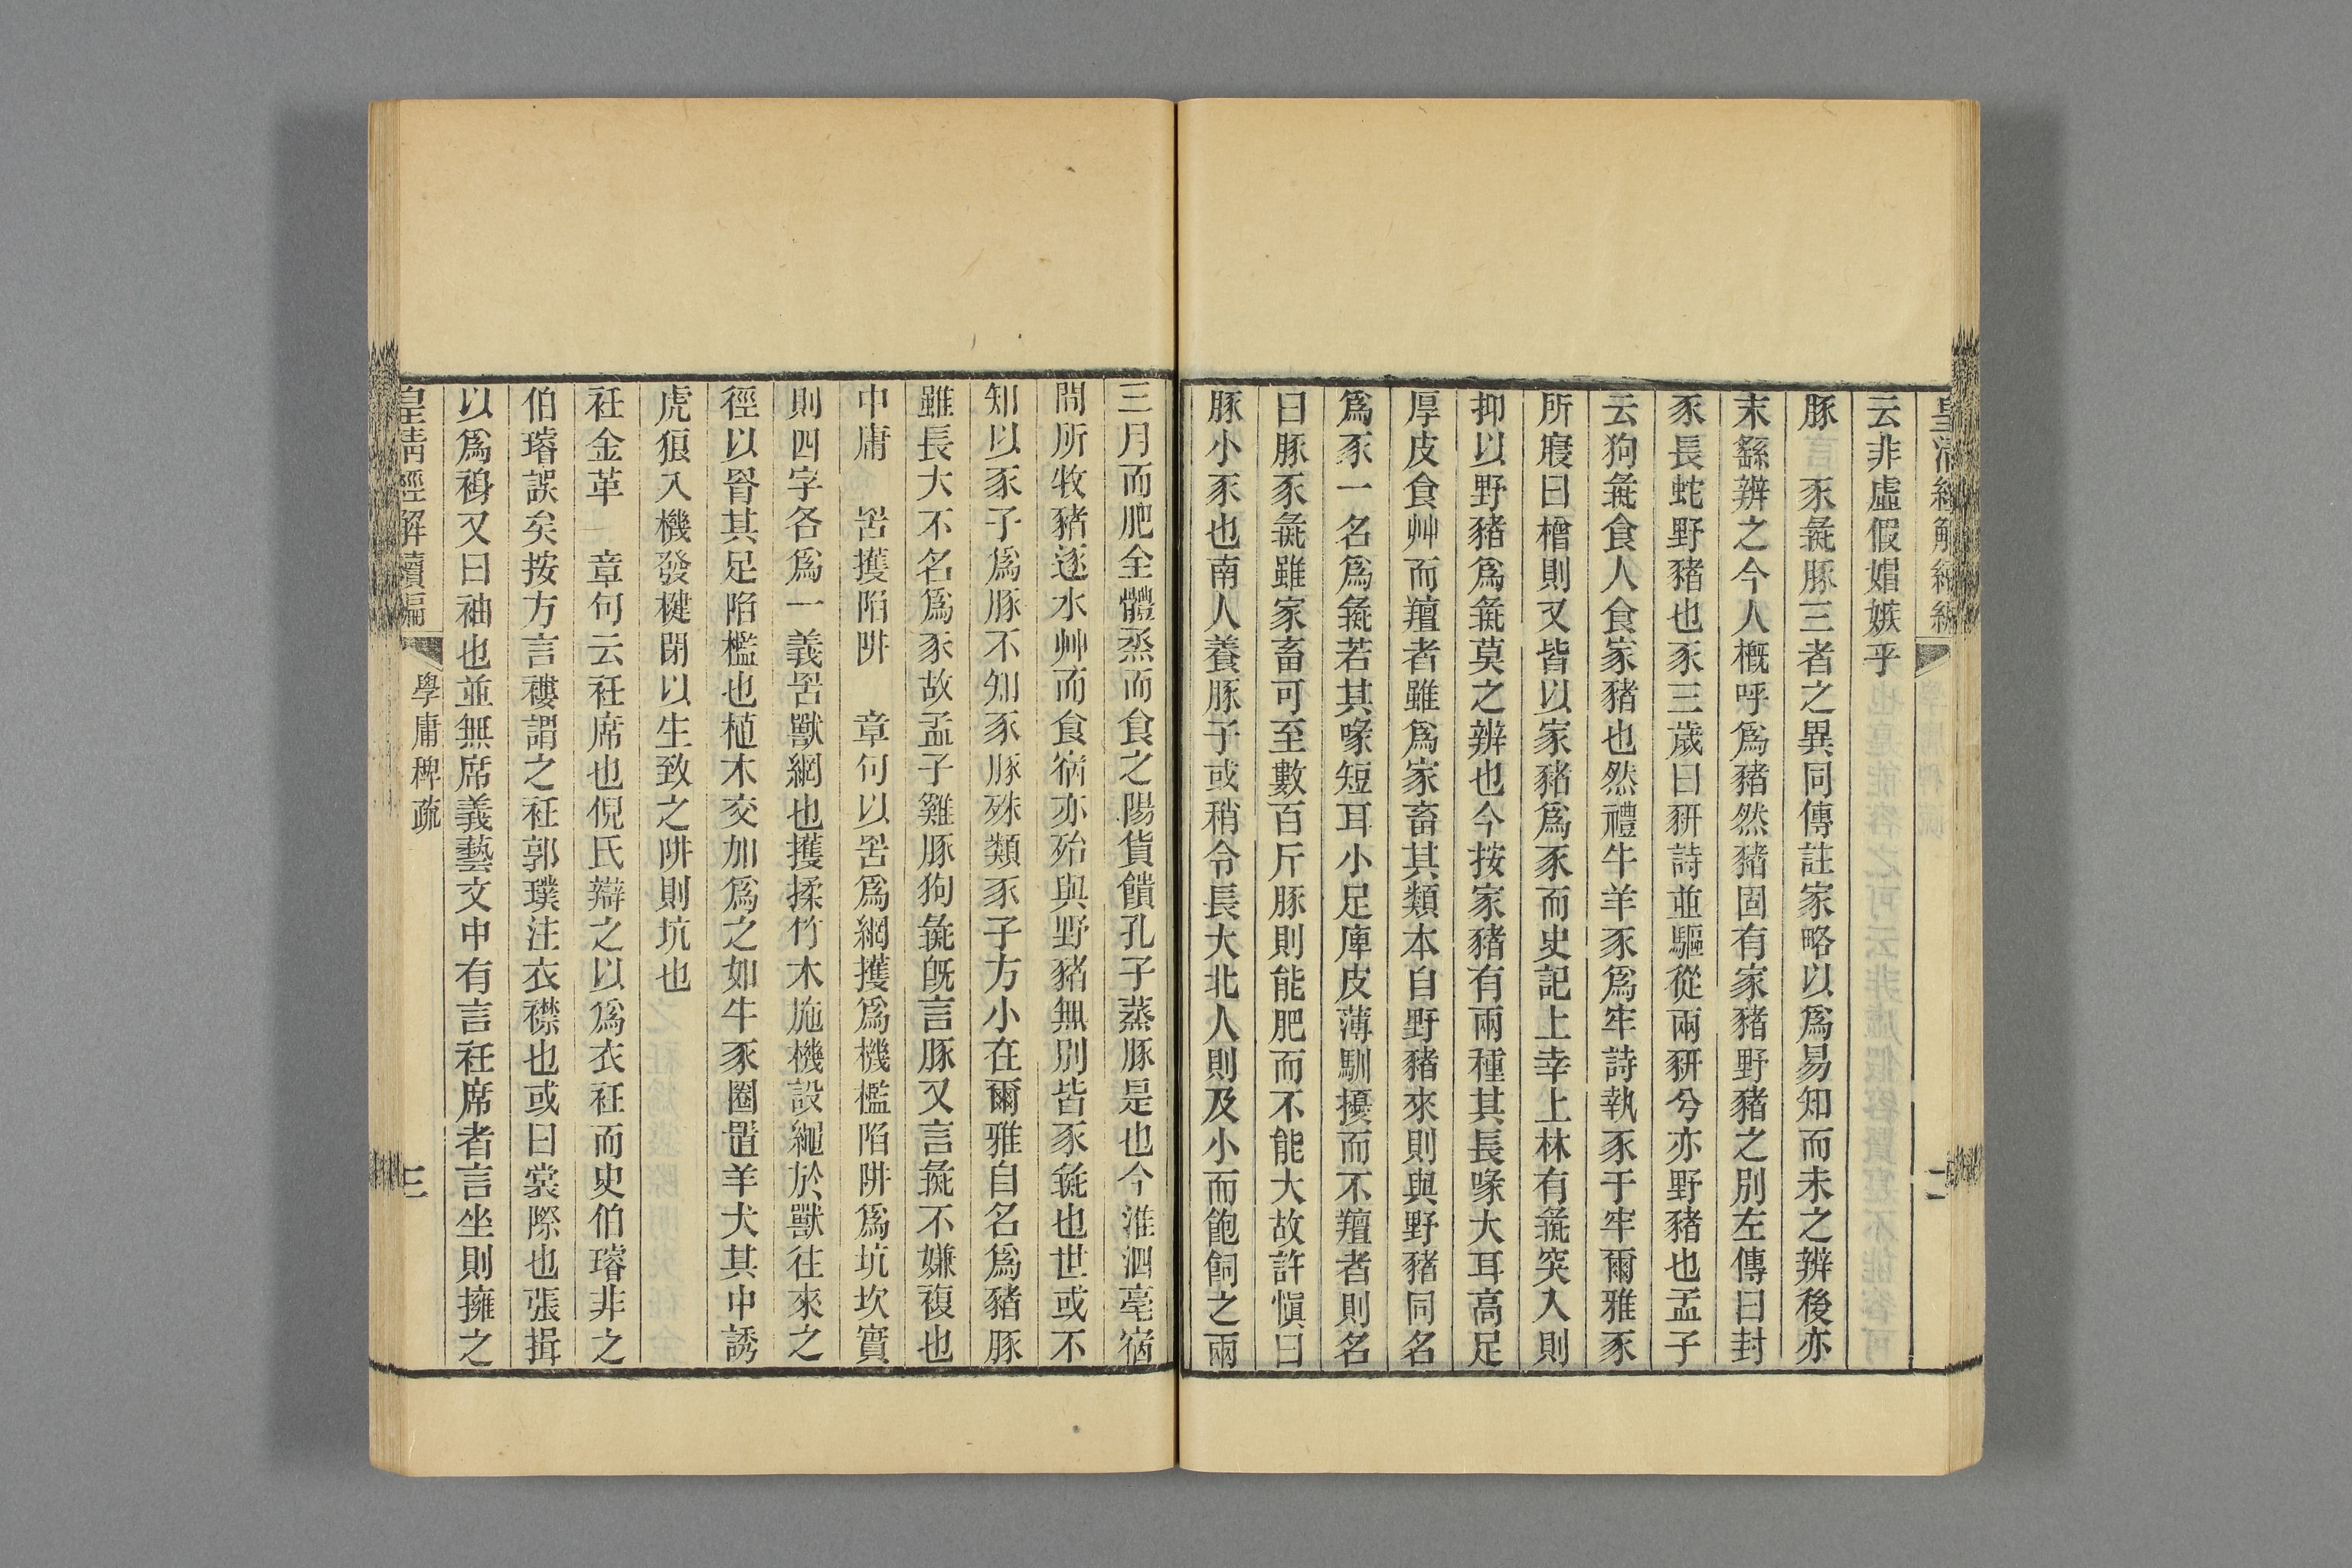 皇清經解續編
二
云非虛假媢嫉乎
豚　豕彘豚三者之異同傳註家略以爲易知而未之辨後亦
末繇辨之今人槪呼爲豬然豬固有家豬野豬之別左傳曰封
豕長蛇野豬也豕三歲曰豜詩並驅從兩豜兮亦野豬也孟子
云狗彘食人食家豬也然禮牛羊豕爲牢詩執豕于牢爾雅豕
所寢曰橧則又皆以家豬爲豕而史記上幸上林有彘突入則
抑以野豬爲彘莫之辨也今按家豬有兩種其長喙大耳高足
厚皮食艸而羶者雖爲家畜其類本自野豬來則與野豬同名
爲豕一名爲彘若其喙短耳小足庳皮薄馴擾而不羶者則名
曰豚豕彘雖家畜可至數百斤豚則能肥而不能大故許愼曰
豚小豕也南人養豚子或稍令長大北人則及小而飽飼之兩
三月而肥全體烝而食之陽貨饋孔子蒸豚是也今淮泗亳宿
閒所牧豬逐水艸而食宿亦殆與野豬無別皆豕彘也世或不
知以豕子爲豚不知豕豚殊類豕子方小在爾雅自名爲豬豚
雖長大不名爲豕故孟子雞豚狗彘旣言豚又言彘不嫌複也
中庸　罟擭陷阱　章句以罟爲網擭爲機檻陷阱爲坑坎實
則四字各爲一義罟獸網也擭揉竹木施機設繩於獸往來之
徑以罥其足陷檻也植木交加爲之如牛豕圈置羊犬其中誘
虎狼入機發楗閉以生致之阱則坑也
衽金革　章句云衽席也倪氏辯之以爲衣衽而史伯璿非之
伯璿誤矣按方言褸謂之衽郭璞注衣襟也或曰裳際也張揖
以爲裑又曰袖也並無席義藝文中有言衽席者言坐則擁之
皇清經解續編
學庸稗疏
三